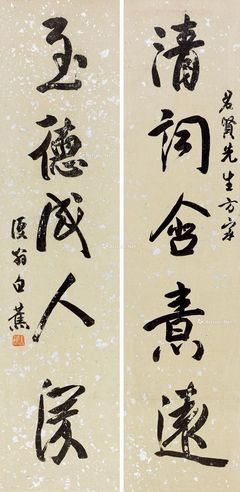 清詞含責遠
賢先生方家
至德人深
復翁白蕉